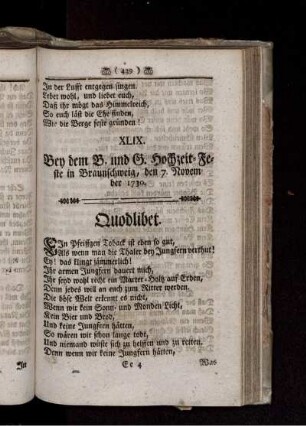 ( 439 )
In der Lufft entgegen singen.
Lebet wohl, und liebet euch,
Daß ihr mögt das Himmelreich,
So euch läst die Ehe finden,
Wie die Berge feste gründen!
XLIX.
Bey dem B. und G. Hochzeit-Fe-
ste in Braunschweig, den 7. Novem-
ber 1730.
Quodlibet.
EIn Pfeiffgen Toback ist eben so gut,
Als wenn man die Thaler bey Jungfern verthut!
Ey! das klingt jämmerlich!
Ihr armen Jungfern dauert mich,
Ihr seyd wohl recht ein Marter-Holtz auf Erden,
Denn jedes will an euch zum Ritter werden.
Die böse Welt erkennt es nicht,
Wenn wir kein Sonn- und Monden Licht,
Kein Bier und Brod,
Und keine Jungfern hätten,
So wären wir schon lange todt,
Und niemand wüste sich zu helffen und zu retten.
Denn wenn wir keine Jungfern hätten,
Ee 4
Was